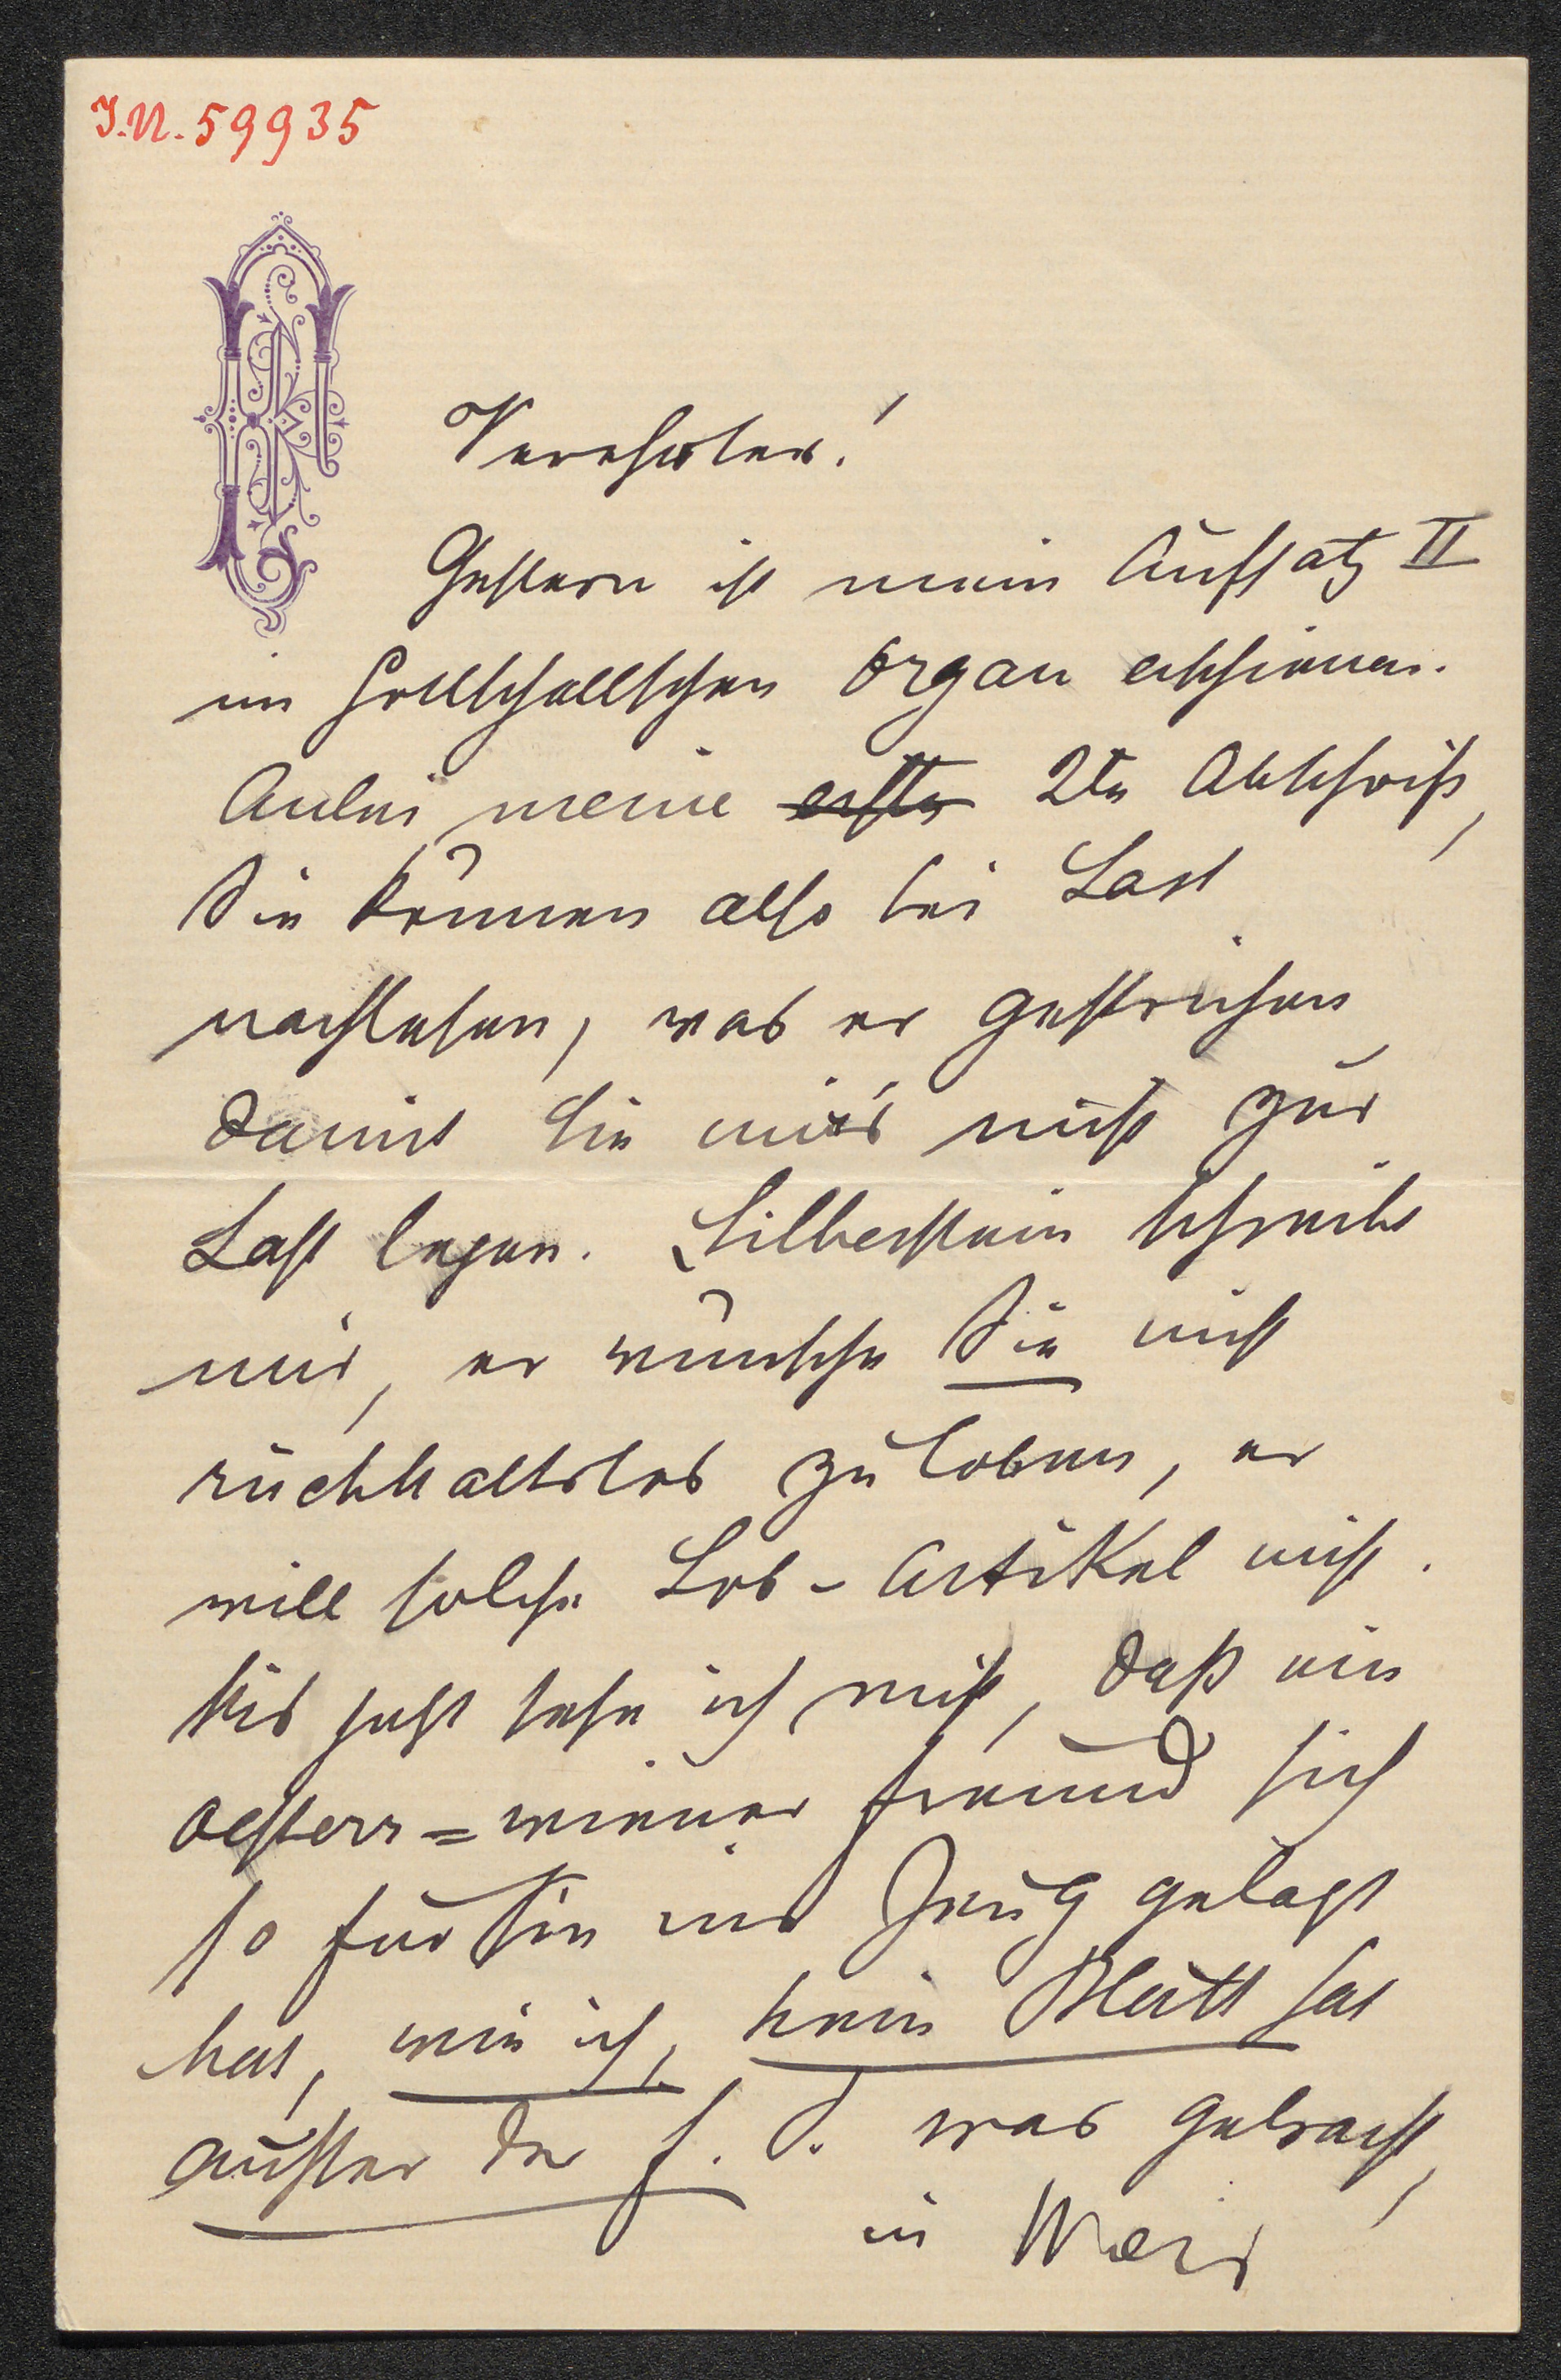 I.N. 59935
Verehrter!
Gestern ist mein Aufsatz II
im Gottschallschen Organ erschienen.
Anbei meine erste 2te Abschrift,
Sie können also bei Last
nachlesen, was er gestrichen
damit Sie mir's nicht zur
Last legen. Silberstein schreibt
mir, er wünsche Sie nicht
rückhaltslos zu loben, er
will solche Lob-Artikel nicht.
Bis jetzt sehe ich nicht, daß ein
oesterr=wiener Freund sich
so für Sie ins Zeug gelegt
hat, wie ich, kein Blatt hat
außer der f. P. was gebracht,
in